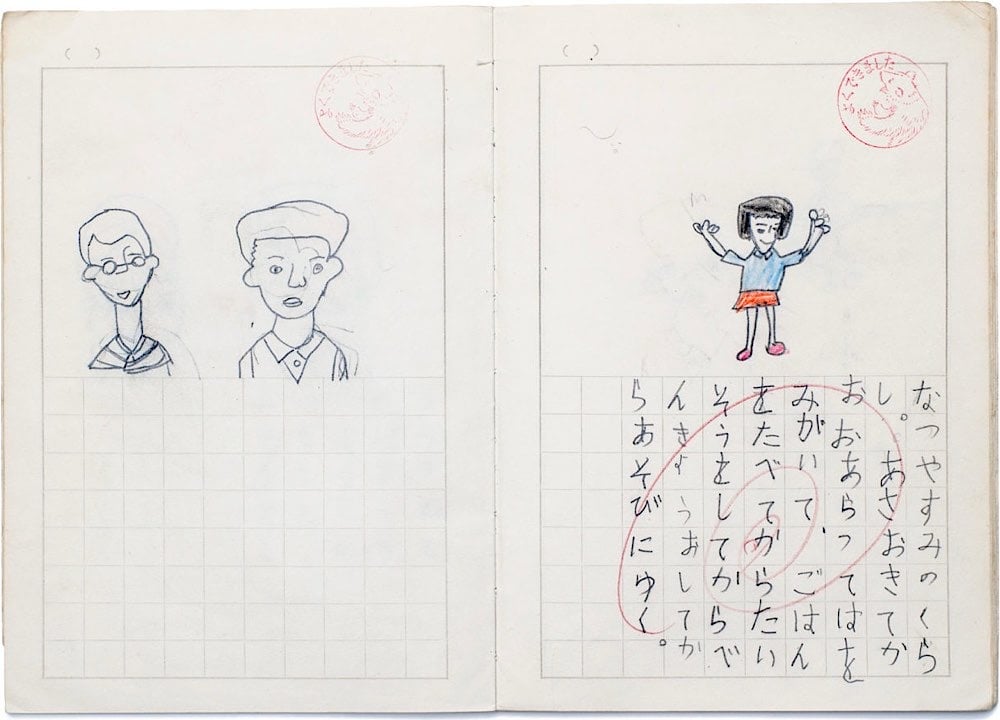 よくできました
よくできました
なつやすみのくら
し。あさおきてか
おおあらってはを
みがいて、ごはん
をたべてからたい
そうをしてからべ
んきょうおしてか
らあそびにゆく。